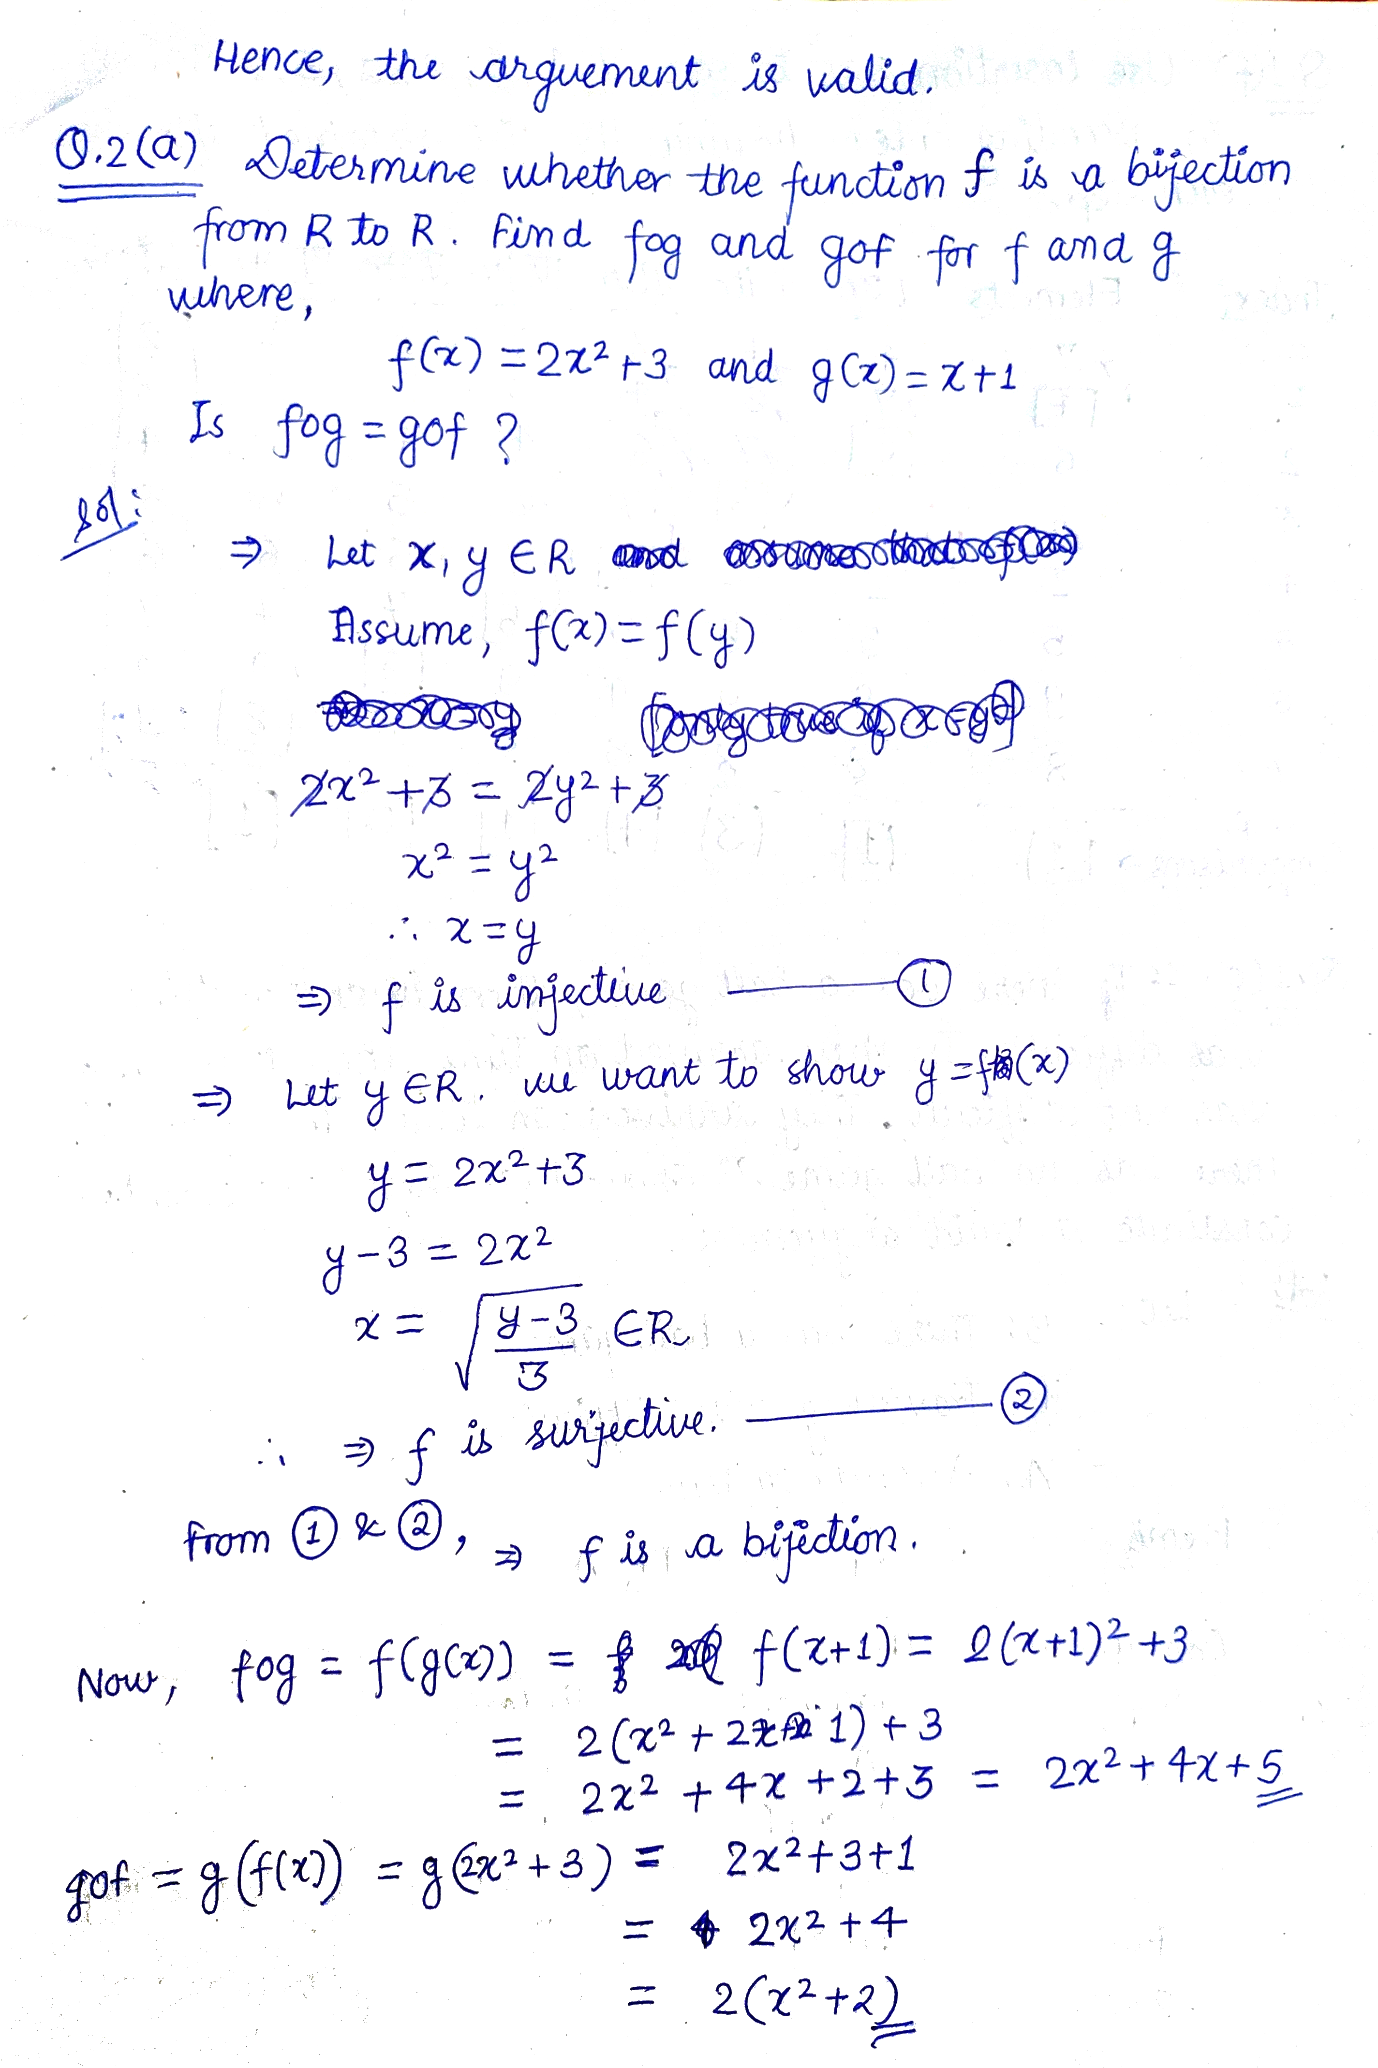 Hence, the arguement is valid.
Q.2(a) Determine whether the function f is a bijection
from R to R. Find fog and gof for f and g
where,
f(x) = 2x² + 3 and g(x) = x+1
Is fog = gof ?
Sol:
⇒ Let x, y ∈ R
Assume, f(x) = f(y)
2x² + 3 = 2y² + 3
x² = y²
∴ x = y
⇒ f is injective ——— ①
⇒ Let y ∈ R. we want to show y = f(x)
y = 2x² + 3
y - 3 = 2x²
x = √((y-3)/3) ∈ R
∴ ⇒ f is surjective. ——— ②
from ① & ②, ⇒ f is a bijection.
Now, fog = f(g(x)) = f(x+1) = 2(x+1)² + 3
= 2(x² + 2x + 1) + 3
= 2x² + 4x + 2 + 3 = 2x² + 4x + 5
gof = g(f(x)) = g(2x² + 3) = 2x² + 3 + 1
= 2x² + 4
= 2(x² + 2)